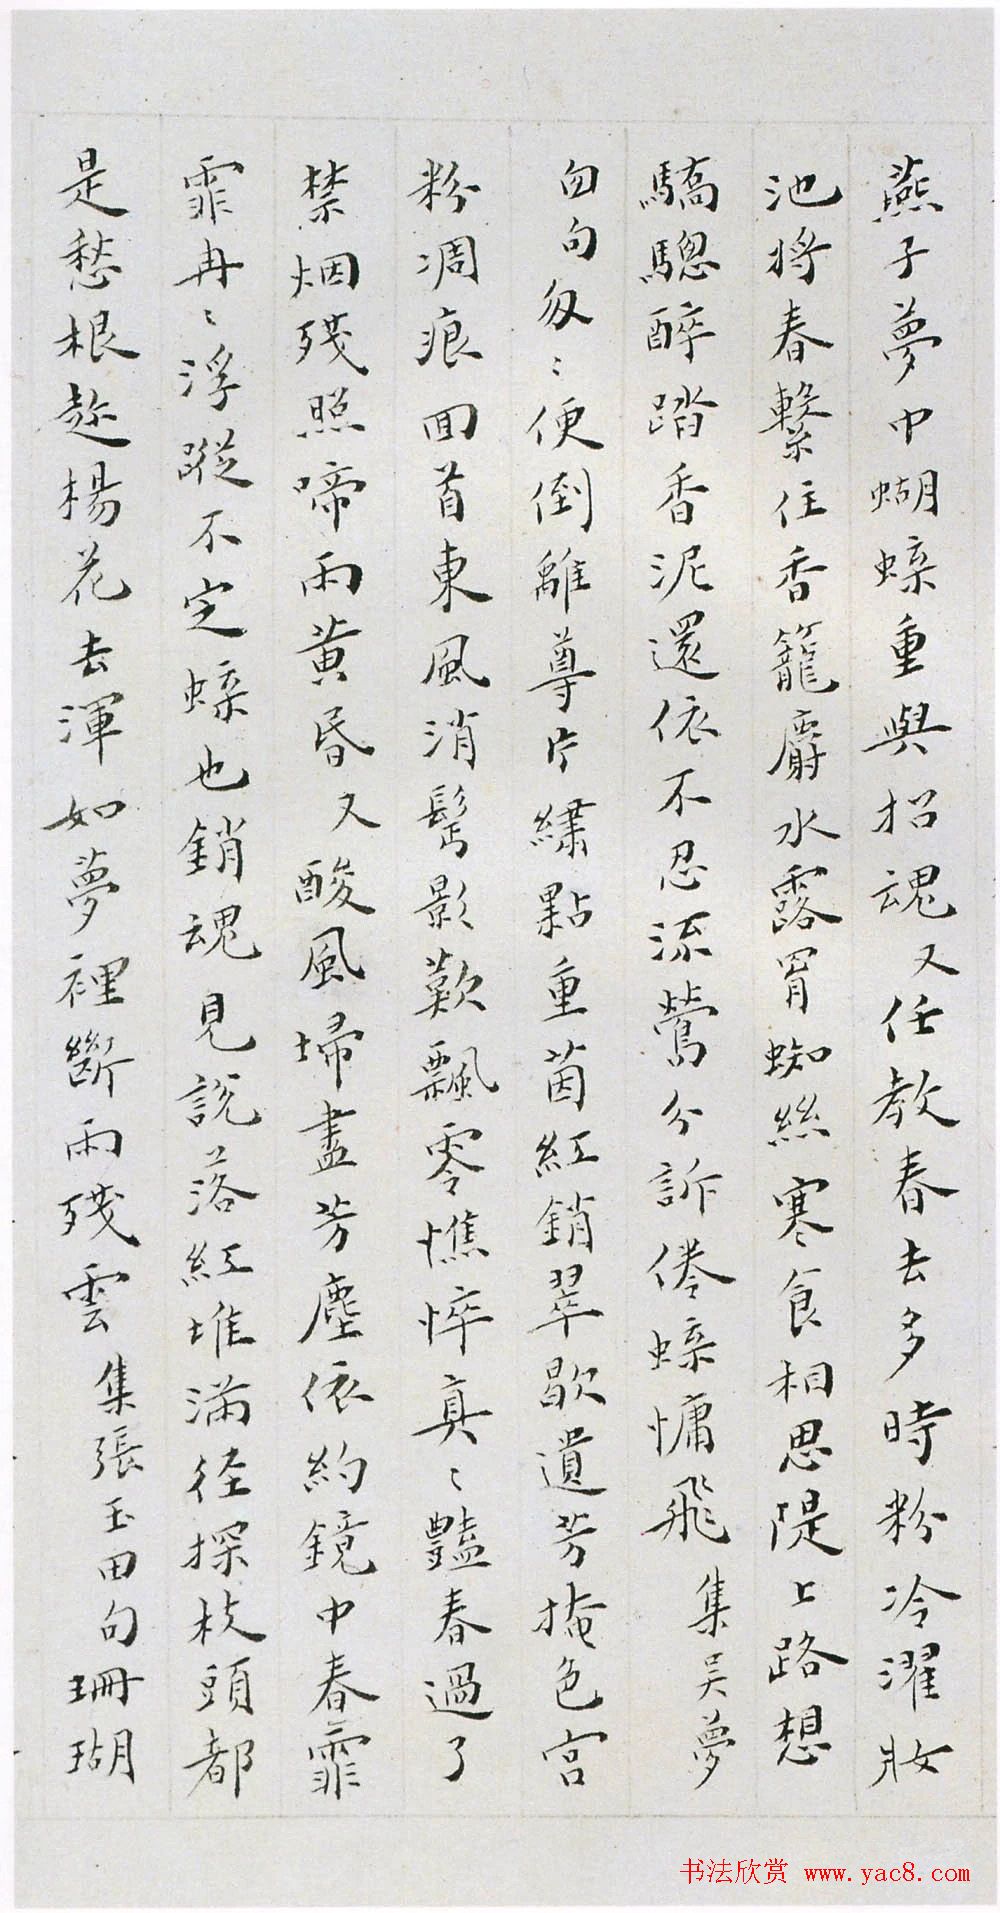 燕子夢中蝴蜨重與招魂又任教春去多時粉冷濯妝
池將春繫住香籠麝水露罥蜘絲寒食相思隄上路想
驕驄醉踏香泥還依不忍流鶯分訴倦蜨慵飛集吴夢
勿句匆〻便倒離尊片繡點重茵紅銷翠歇遺芳掩色宫
粉凋痕回首東風消鬢影歎飄零憔悴真〻豔春過了
禁烟殘照啼雨黄昏又酸風埽盡芳塵依約鏡中春霏
霏冉〻浮蹤不定蜨也銷魂見說落紅堆滿徑探枝頭都
是愁根趁楊花去渾如夢裡斷雨殘雲集張玉田句珊瑚
书法欣赏 www.yac8.com